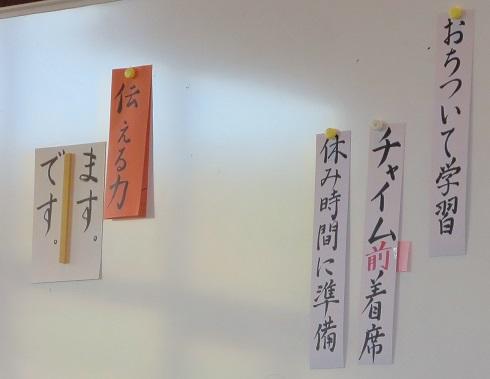 おちついて学習
チャイム前着席
休み時間に準備
伝える力
ます。
です。